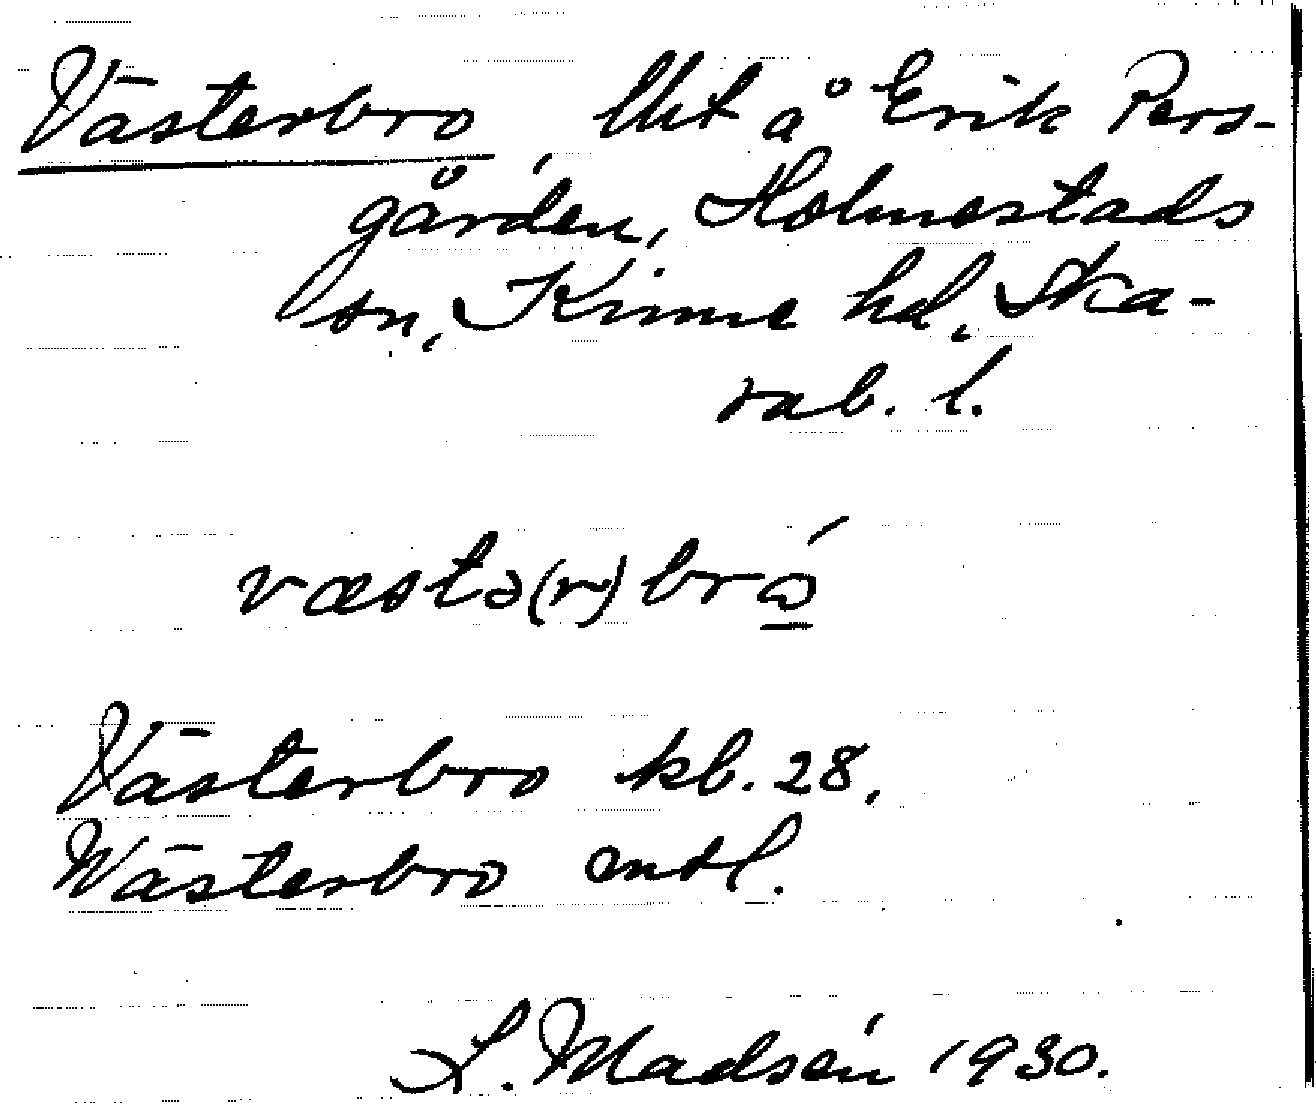 Västerbro, lht å Erik Pers-
gården, Holmestads
sn, Kinne hd, Ska-
rab. l.
væstə(r)brǻ
Västerbro kb. 28.
Wästerbro
L. Madsén 1930.